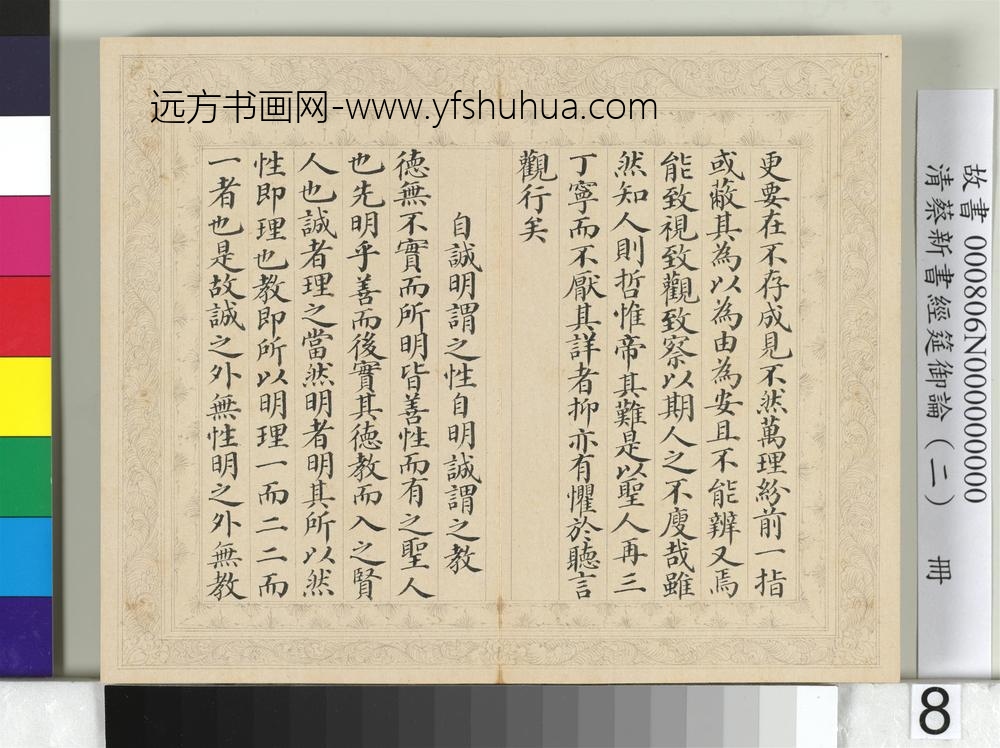 远方书画网-www.yfshuhua.com
更要在不存成見不然萬理紛前一指
或蔽其為以為由為安且不能辨又焉
能致視致觀致察以期人之不廋哉雖
然知人則哲惟帝其難是以聖人再三
丁寧而不厭其詳者抑亦有懼於聽言
觀行矣
自誠明謂之性自明誠謂之教
德無不實而所明皆善性而有之聖人
也先明乎善而後實其德教而入之賢
人也誠者理之當然明者明其所以然
性即理也教即所以明理一而二二而
一者也是故誠之外無性明之外無教
故書 000806N000000000
清蔡新書經筵御論（二） 冊
8